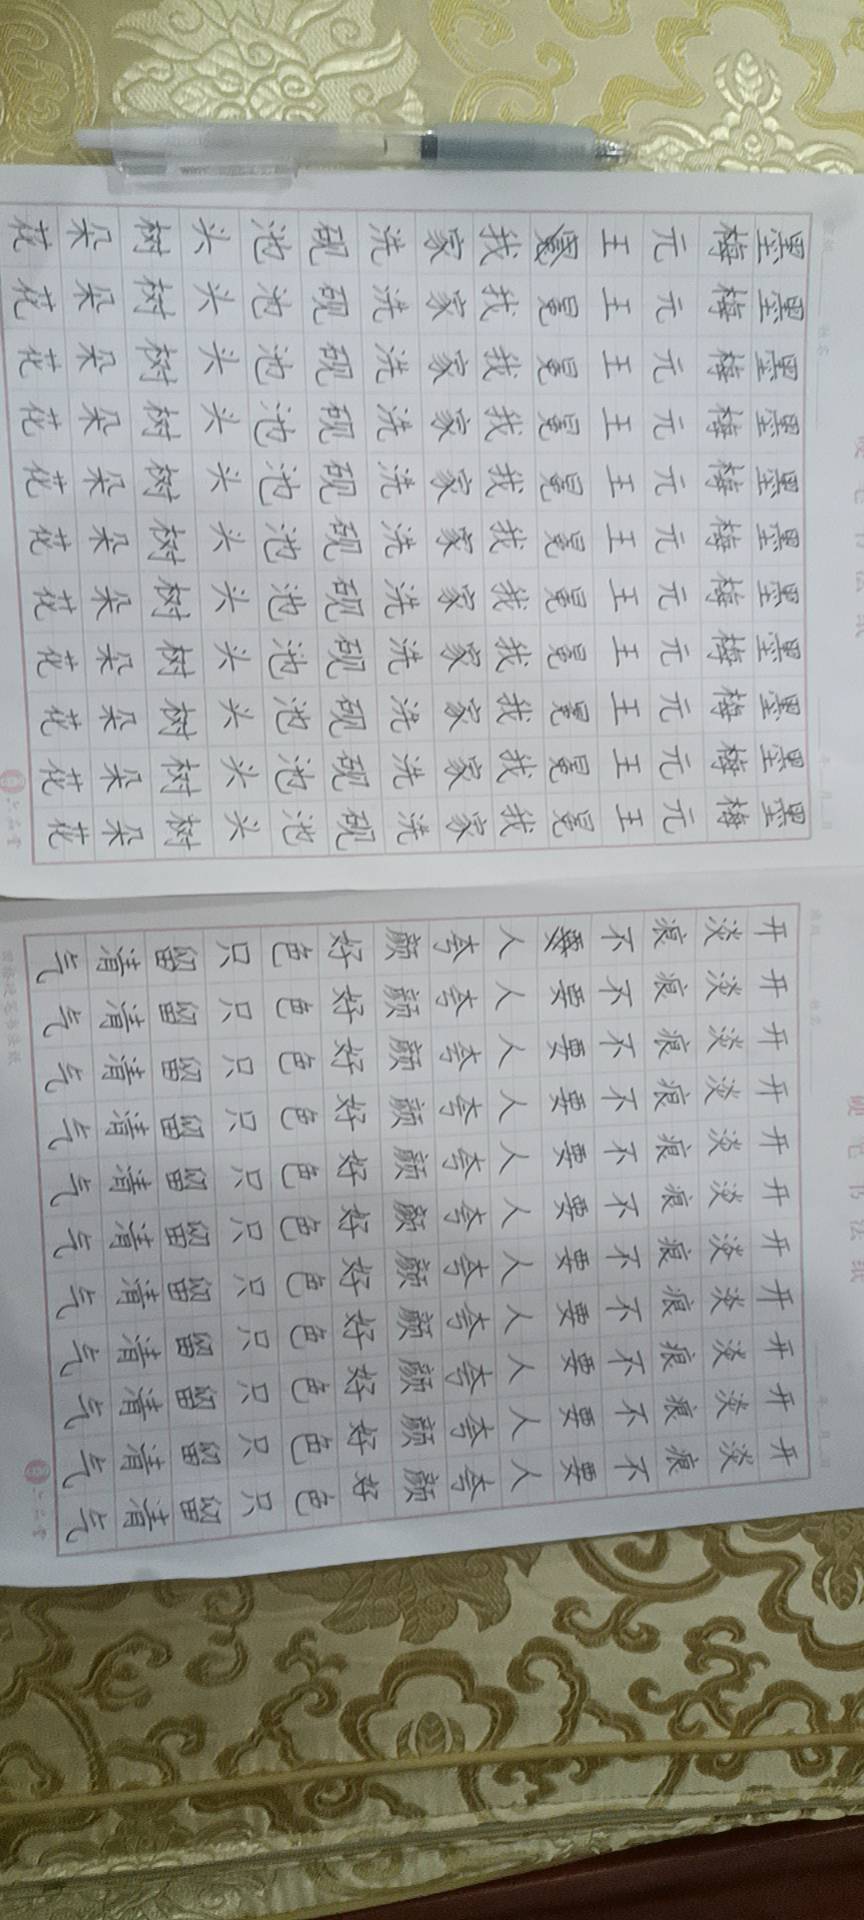 硬笔书法纸
墨墨墨墨墨墨墨墨墨墨墨
梅梅梅梅梅梅梅梅梅梅梅
元元元元元元元元元元元
王王王王王王王王王王王
冕冕冕冕冕冕冕冕冕冕
我我我我我我我我我我我
家家家家家家家家家家家
洗洗洗洗洗洗洗洗洗洗洗
砚砚砚砚砚砚砚砚砚砚砚
池池池池池池池池池池池
头头头头头头头头头头头
树树树树树树树树树树树
朵朵朵朵朵朵朵朵朵朵朵
花花花花花花花花花花花
六品堂
硬笔书法纸
开开开开开开开开开开开
淡淡淡淡淡淡淡淡淡淡淡
痕痕痕痕痕痕痕痕痕痕痕
不不不不不不不不不不不
要要要要要要要要要要要
人人人人人人人人人人人
夸夸夸夸夸夸夸夸夸夸夸
颜颜颜颜颜颜颜颜颜颜颜
好好好好好好好好好好好
色色色色色色色色色色色
只只只只只只只只只只只
留留留留留留留留留留留
清清清清清清清清清清清
气气气气气气气气气气气
六品堂